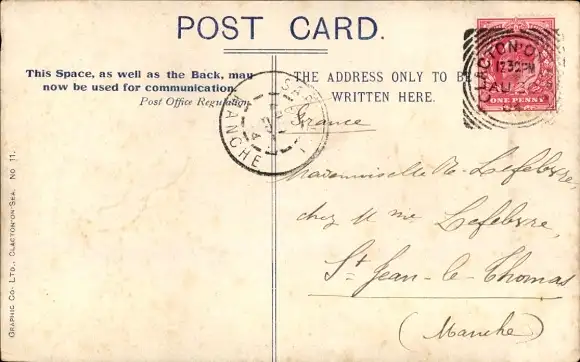 POST CARD.
This Space, as well as the Back, may
now be used for communication.
Post Office Regulation.
THE ADDRESS ONLY TO BE
WRITTEN HERE.
France
Mademoiselle Lefebvre,
chez Mme Lefebvre,
St Jean-le-Thomas
(Manche)
CLACTON O
12 30 PM
AU
04
ONE PENNY
SAR
MANCHE
GRAPHIC CO. LTD., CLACTON-ON-SEA. NO 11.